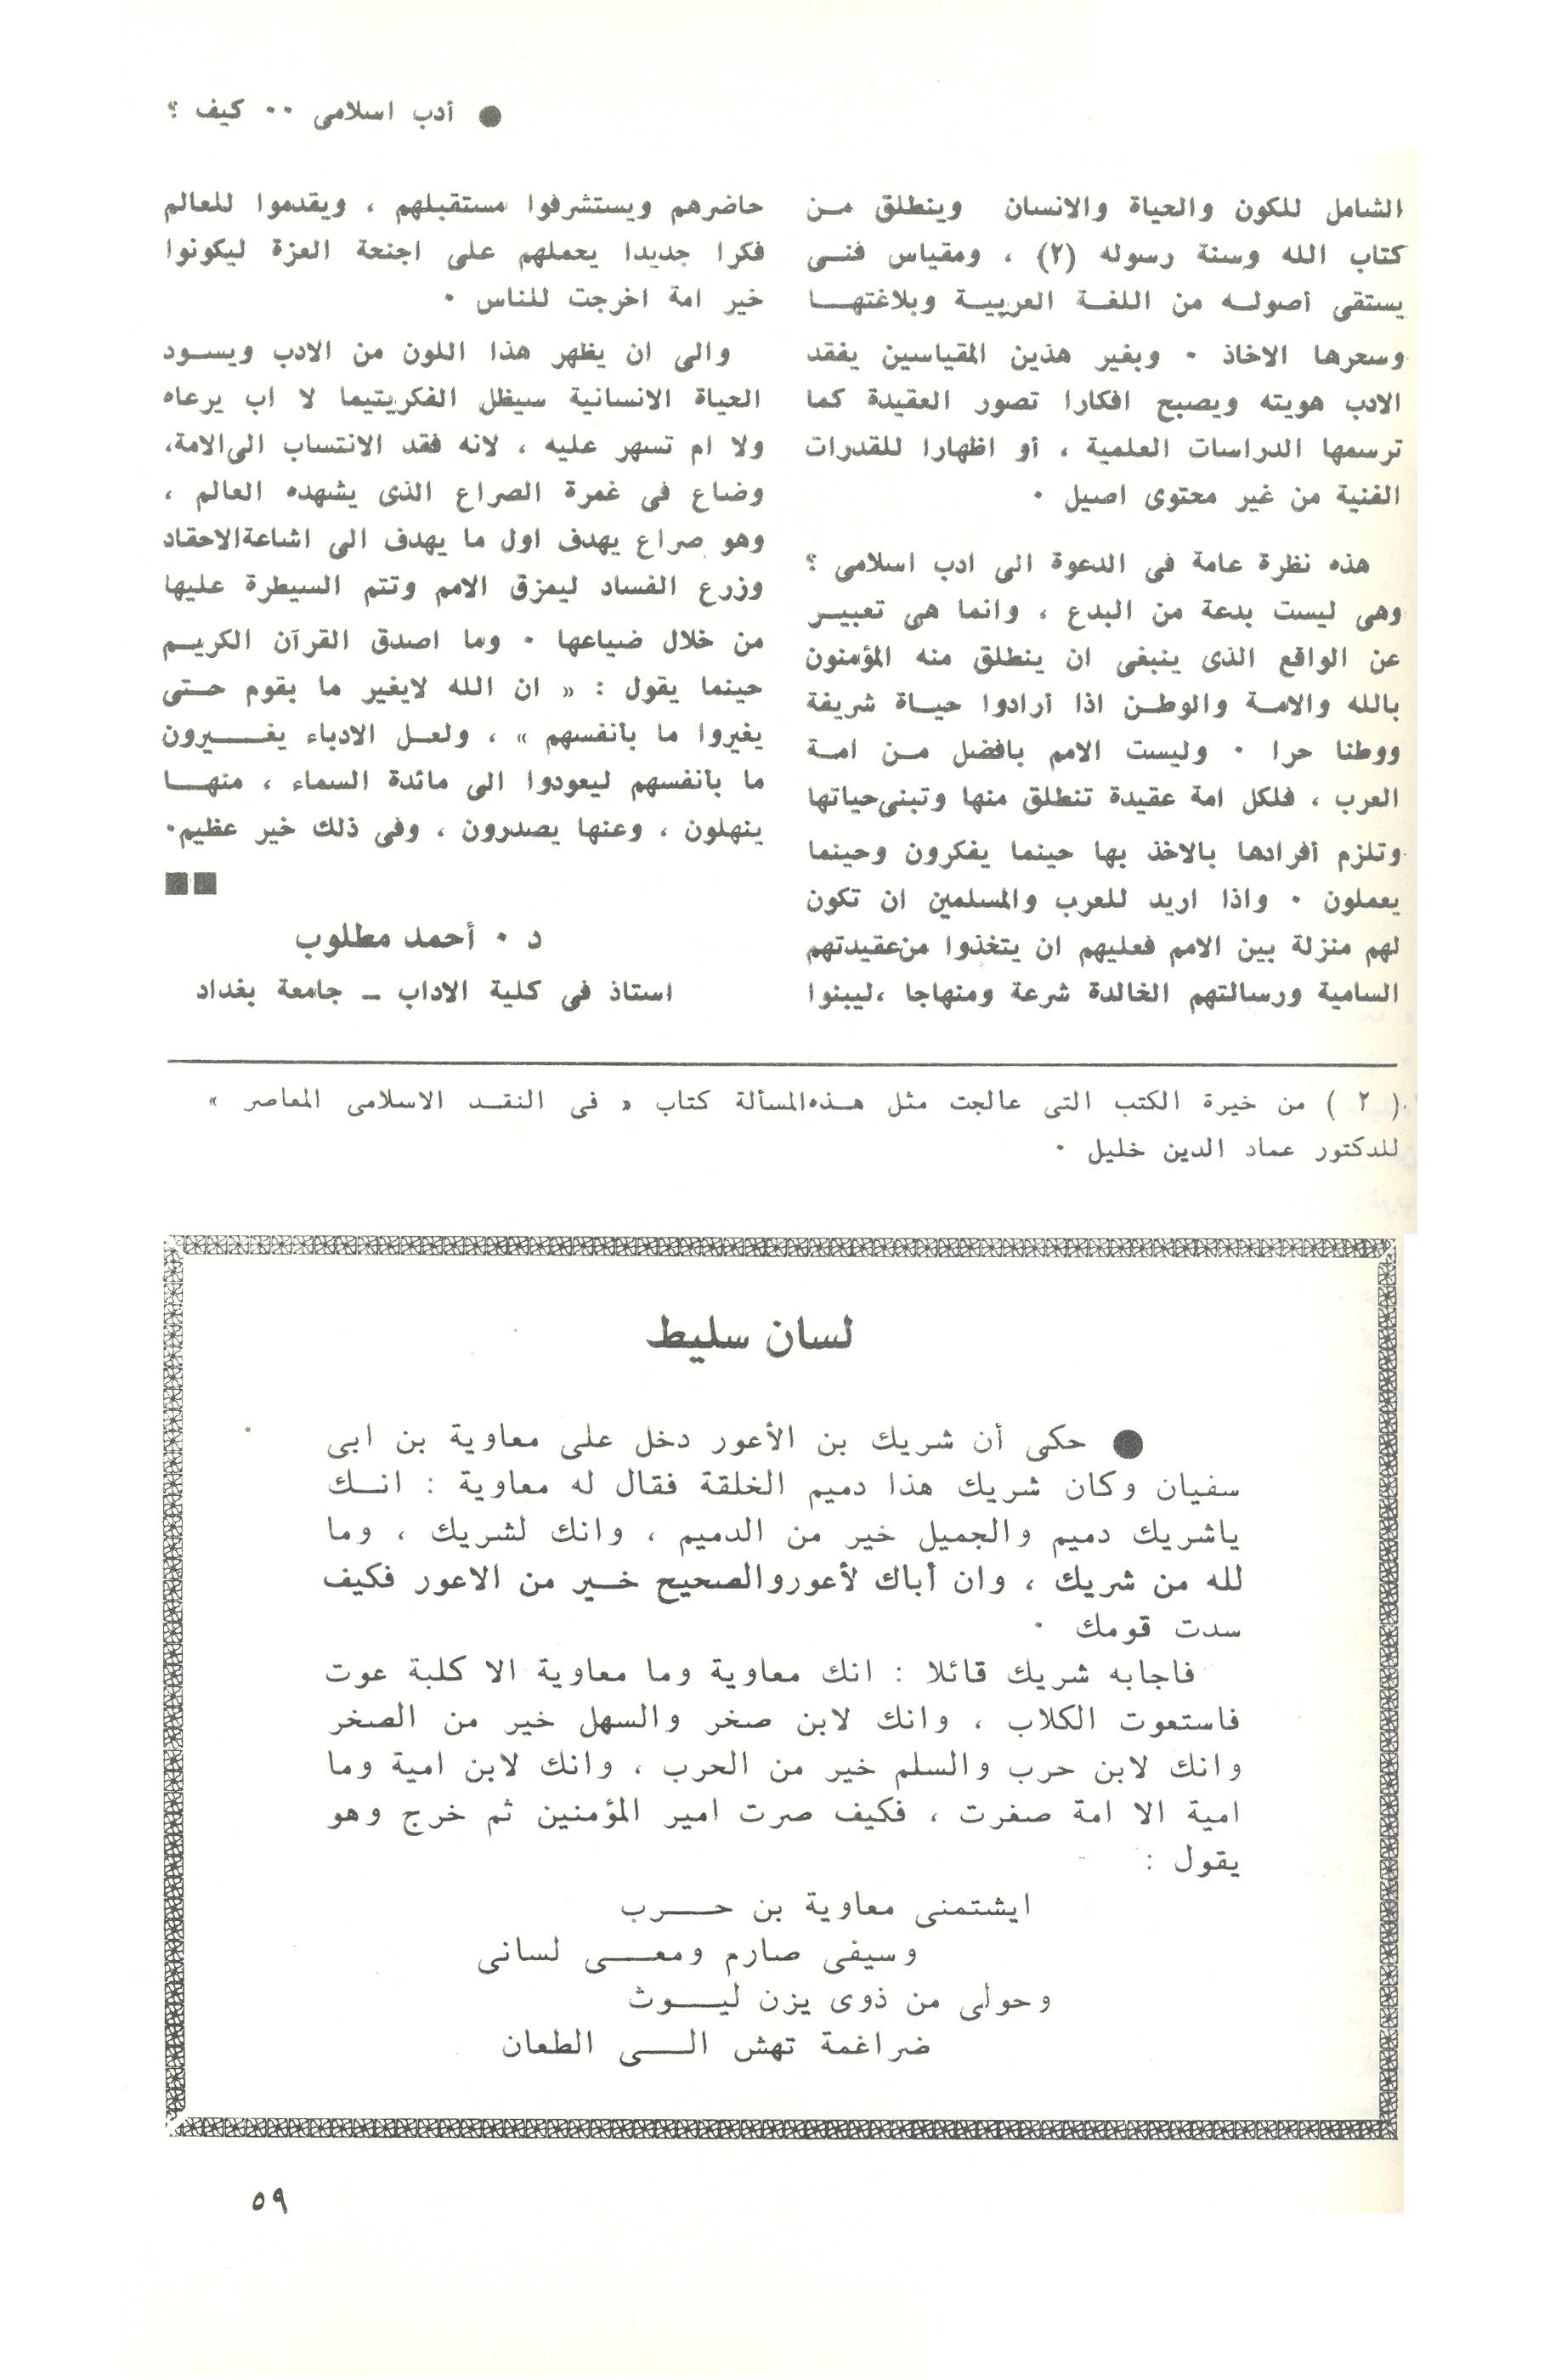 ● أدب اسلامى ٠٠ كيف ؟
الشامل للكون والحياة والانسان وينطلق من
كتاب الله وسنة رسوله (٢) ، ومقياس فنى
يستقى أصوله من اللغة العربية وبلاغتها
وسحرها الاخاذ ٠ وبغير هذين المقياسين يفقد
الادب هويته ويصبح افكارا تصور العقيدة كما
ترسمها الدراسات العلمية ، أو اظهارا للقدرات
الفنية من غير محتوى اصيل ٠
هذه نظرة عامة فى الدعوة الى ادب اسلامى ؟
وهى ليست بدعة من البدع ، وانما هى تعبير
عن الواقع الذى ينبغى ان ينطلق منه المؤمنون
بالله والامة والوطن اذا أرادوا حياة شريفة
ووطنا حرا ٠ وليست الامم بافضل من امة
العرب ، فلكل امة عقيدة تنطلق منها وتبنى حياتها
وتلزم أفرادها بالاخذ بها حينما يفكرون وحينما
يعملون ٠ واذا اريد للعرب والمسلمين ان تكون
لهم منزلة بين الامم فعليهم ان يتخذوا من عقيدتهم
السامية ورسالتهم الخالدة شرعة ومنهاجا ، ليبنوا
حاضرهم ويستشرفوا مستقبلهم ، ويقدموا للعالم
فكرا جديدا يحملهم على اجنحة العزة ليكونوا
خير امة اخرجت للناس ٠
والى ان يظهر هذا اللون من الادب ويسود
الحياة الانسانية سيظل الفكر يتيما لا اب يرعاه
ولا ام تسهر عليه ، لانه فقد الانتساب الى الامة،
وضاع فى غمرة الصراع الذى يشهده العالم ،
وهو صراع يهدف اول ما يهدف الى اشاعة الاحقاد
وزرع الفساد ليمزق الامم وتتم السيطرة عليها
من خلال ضياعها ٠ وما اصدق القرآن الكريم
حينما يقول : « ان الله لايغير ما بقوم حتى
يغيروا ما بأنفسهم » ، ولعل الادباء يغيرون
ما بأنفسهم ليعودوا الى مائدة السماء ، منها
ينهلون ، وعنها يصدرون ، وفى ذلك خير عظيم٠
د ٠ أحمد مطلوب
استاذ فى كلية الاداب ـ جامعة بغداد
( ٢ ) من خيرة الكتب التى عالجت مثل هذه المسألة كتاب « فى النقد الاسلامى المعاصر »
للدكتور عماد الدين خليل ٠
لسان سليط
● حكى أن شريك بن الأعور دخل على معاوية بن ابى
سفيان وكان شريك هذا دميم الخلقة فقال له معاوية : انك
ياشريك دميم والجميل خير من الدميم ، وانك لشريك ، وما
لله من شريك ، وان أباك لأعور والصحيح خير من الاعور فكيف
سدت قومك ٠
فاجابه شريك قائلا : انك معاوية وما معاوية الا كلبة عوت
فاستعوت الكلاب ، وانك لابن صخر والسهل خير من الصخر
وانك لابن حرب والسلم خير من الحرب ، وانك لابن امية وما
امية الا امة صغرت ، فكيف صرت امير المؤمنين ثم خرج وهو
يقول :
ايشتمنى معاوية بن حرب
وسيفى صارم ومعى لسانى
وحولى من ذوى يزن ليوث
ضراغمة تهش الى الطعان
٥٩